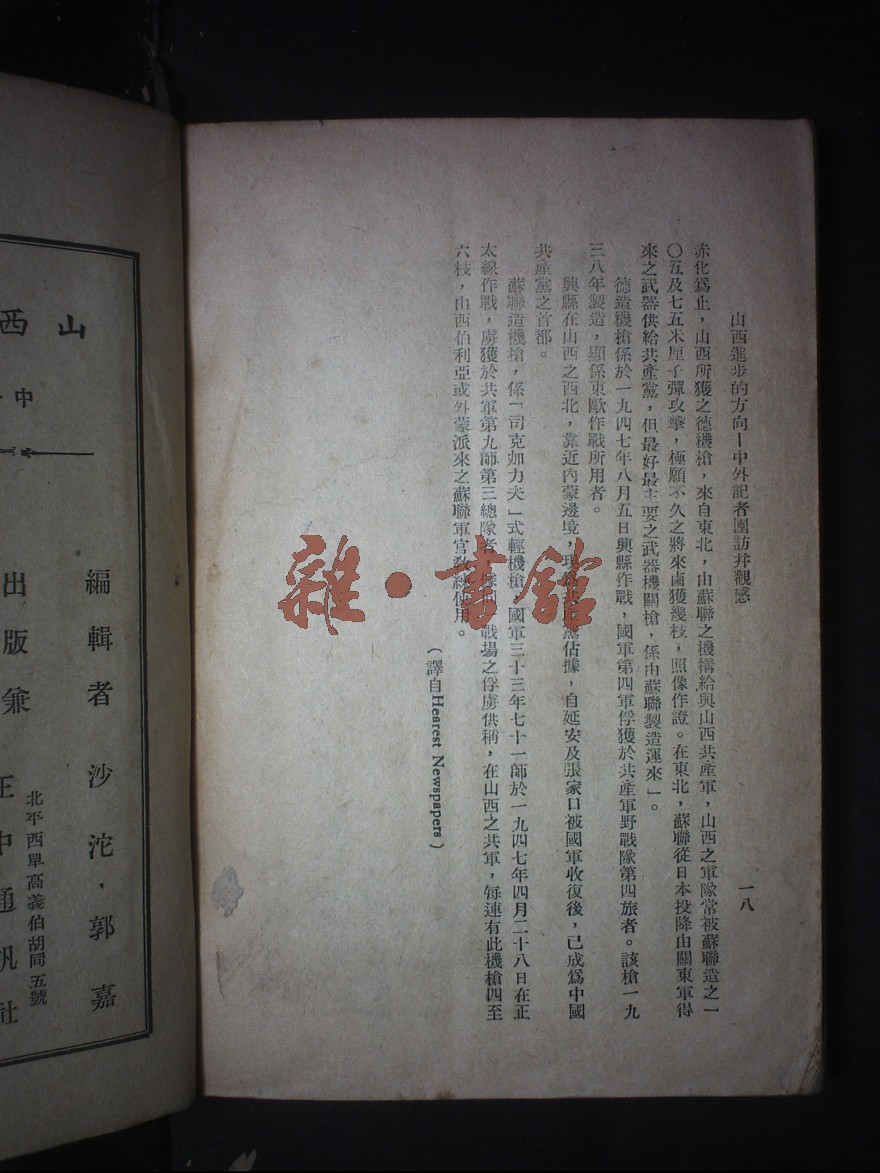 山西進步的方向—中外記者團訪井觀感
一八
赤化爲止，山西所獲之德機槍，來自東北，由蘇聯之機構給與山西共產軍，山西之軍隊常被蘇聯造之一
〇五及七五米厘子彈攻擊，極願不久之將來鹵獲幾枝，照像作證。在東北，蘇聯從日本投降由關東軍得
來之武器供給共產黨，但最好最主要之武器機關槍，係由蘇聯製造運來」。
德造機槍係於一九四七年八月五日興縣作戰，國軍第四軍俘獲於共產軍野戰隊第四旅者。該槍一九
三八年製造，顯係東歐作戰所用者。
興縣在山西之西北，靠近內蒙邊境，現爲共產黨佔據，自延安及張家口被國軍收復後，已成爲中國
共產黨之首都。
蘇聯造機槍，係「司克加力夫」式輕機槍，國軍三十三年七十一師於一九四七年四月二十八日在正
太線作戰，虜獲於共軍第九師第三總隊者，戰場之俘虜供稱，在山西之共軍，每連有此機槍四至
六枝，由西伯利亞或外蒙派來之蘇聯軍官教練使用。
（譯自Hearest Newspapers）
雜·書館
山西
中
編輯者 沙沱．郭嘉
出版兼 正中通訊社
北平西單高義伯胡同五號